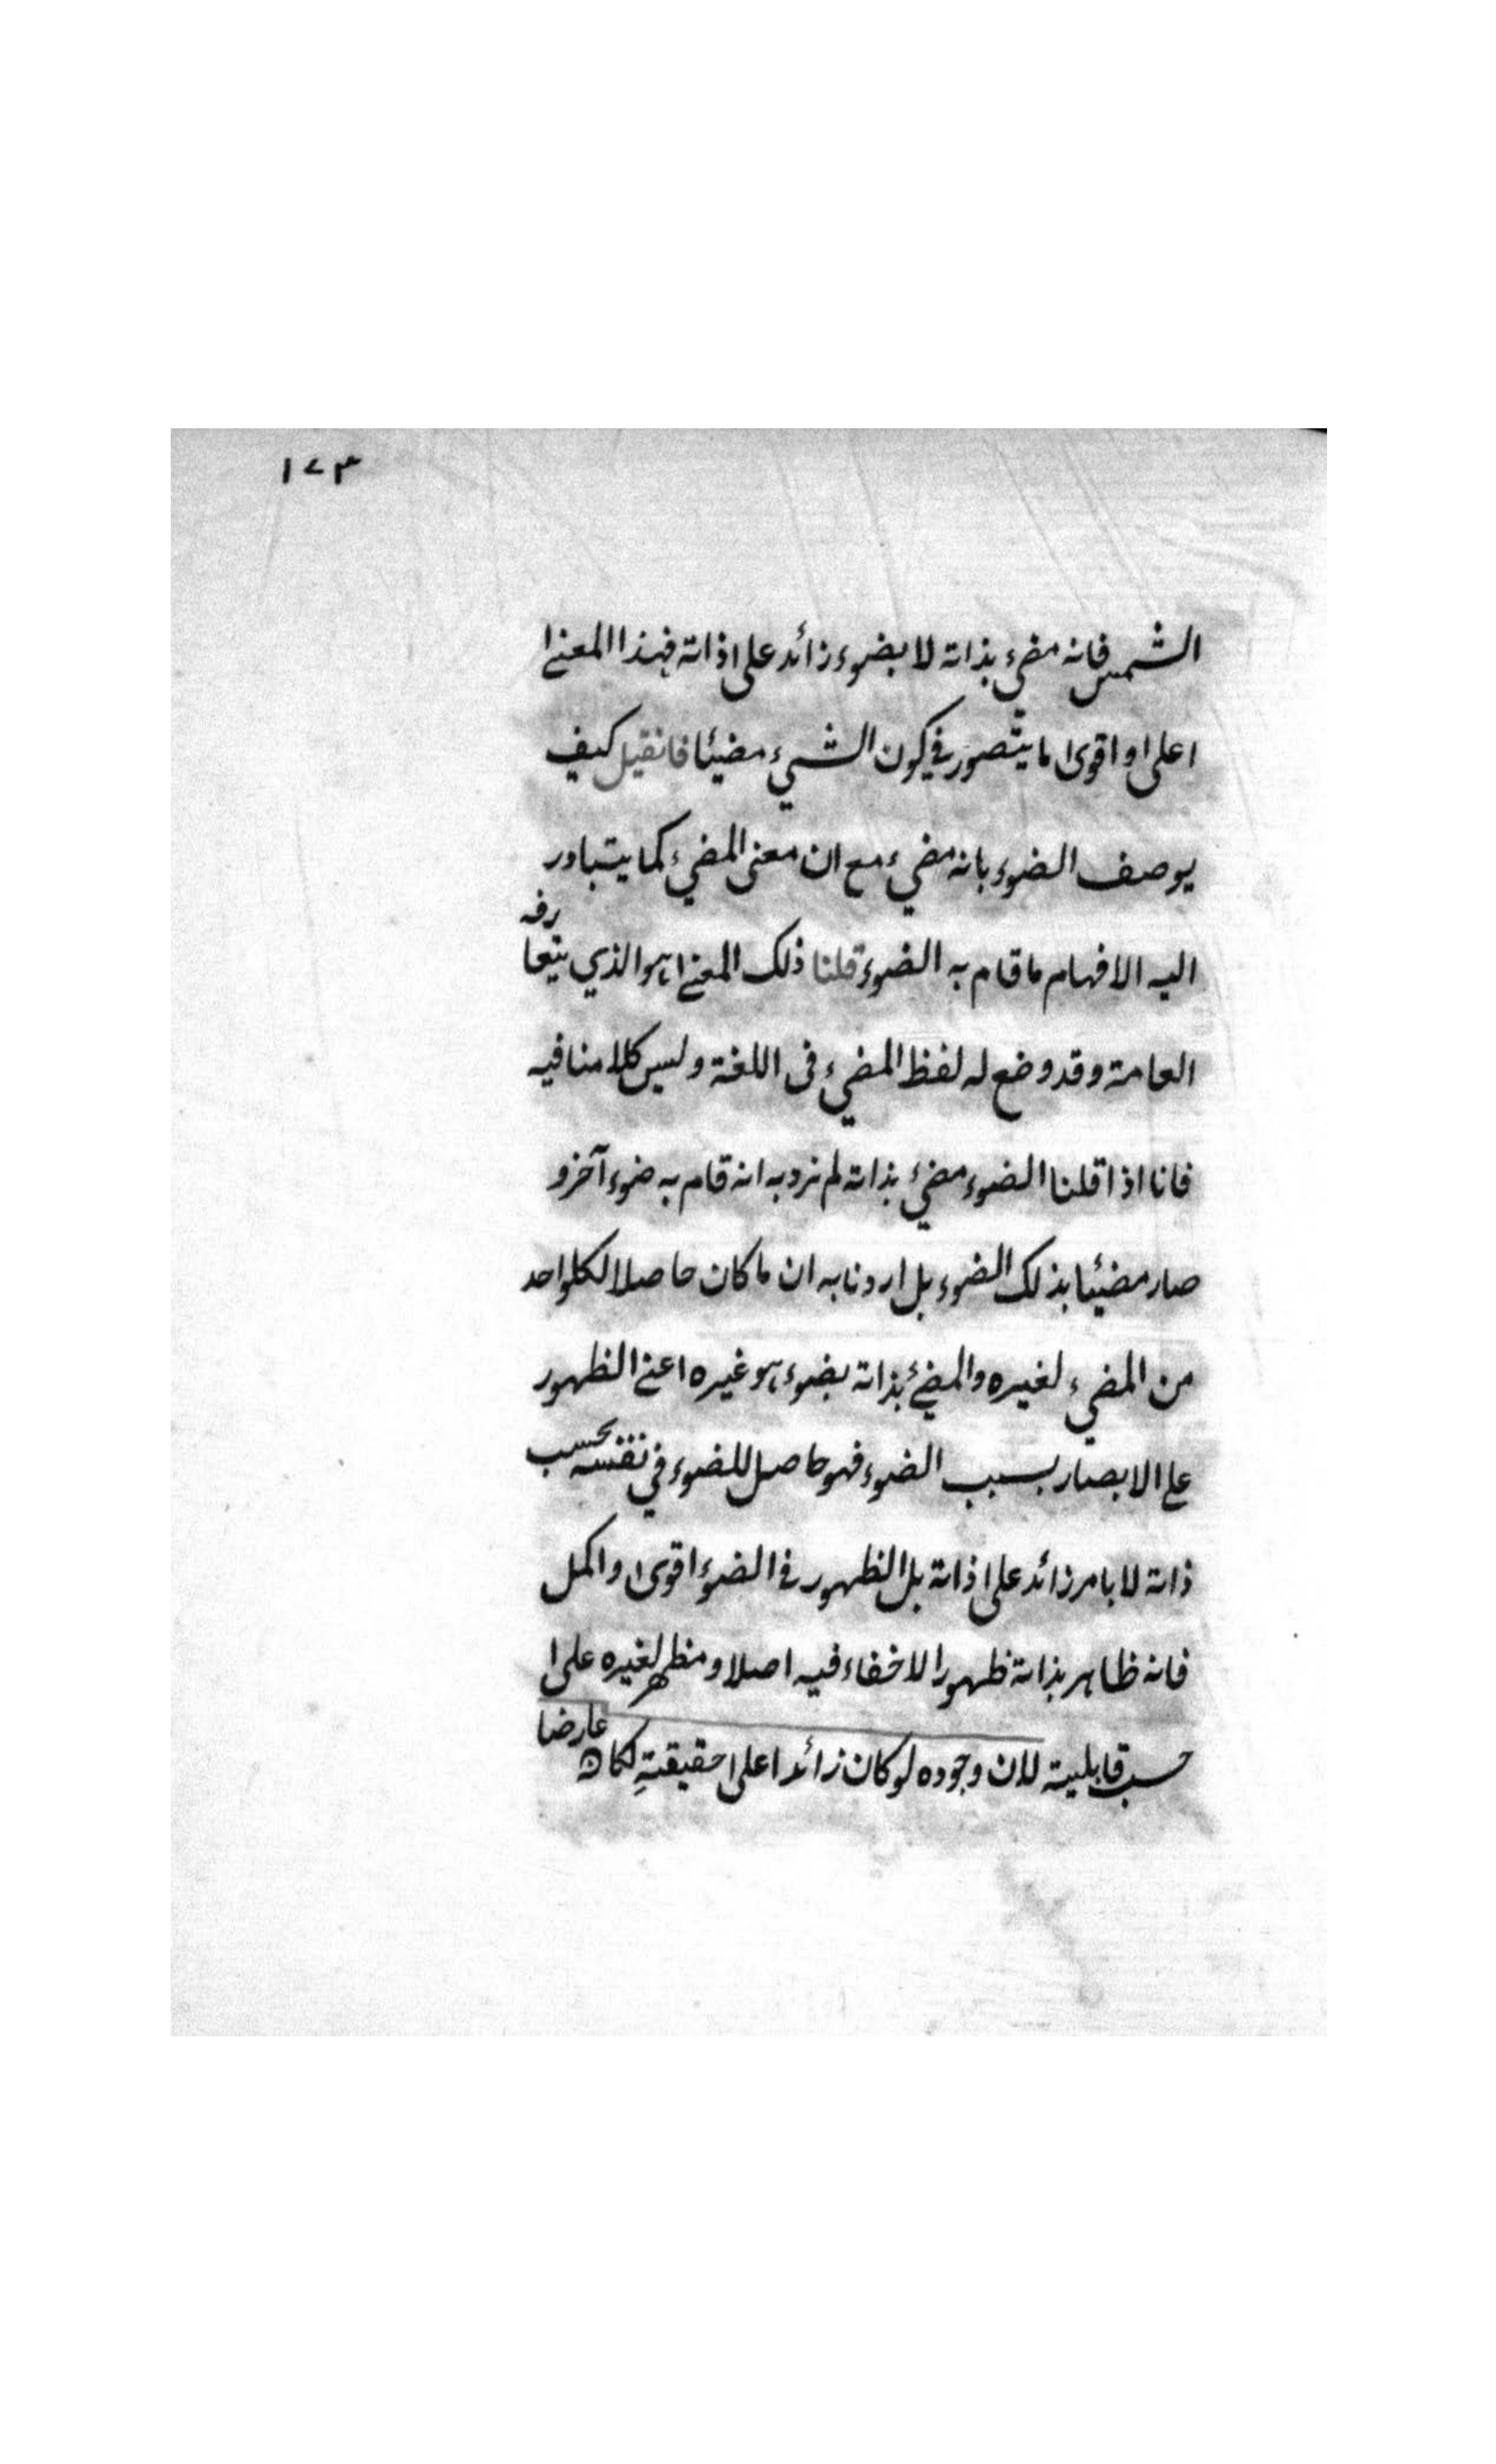 ١٧٣
الشمس فانه مضيء بذاته لا بضوء زائد على ذاته فهذا المعنى
اعلى واقوى ما يتصور في كون الشيء مضيئا فان قيل كيف
يوصف الضوء بانه مضيء مع ان معنى المضيء كما يتبادر
اليه الافهام ما قام به الضوء قلنا ذلك المعنى هو الذي يتعارفه
العامة وقد وضع له لفظ المضيء في اللغة وليس كلامنا فيه
فانا اذا قلنا الضوء مضيء بذاته لم نرد به انه قام به ضوء آخر و
صار مضيئا بذلك الضوء بل اردنا به ان ما كان حاصلا لكل واحد
من المضيء لغيره والمضيء بذاته بضوء هو غيره اعني الظهور
على الابصار بسبب الضوء فهو حاصل للضوء في نفسه بحسب
ذاته لا بامر زائد على ذاته بل الظهور في الضوء اقوى واكمل
فانه ظاهر بذاته ظهورا لا خفاء فيه اصلا ومظهر لغيره على
حسب قابليته لان وجوده لو كان زائدا على حقيقتهِ لكان عارضا